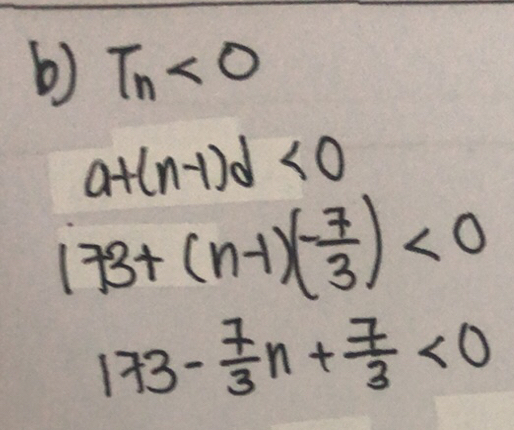 b) Tn < 0
a+(n-1)d < 0
173+ (n-1)(-7/3) < 0
173 - 7/3 n + 7/3 < 0